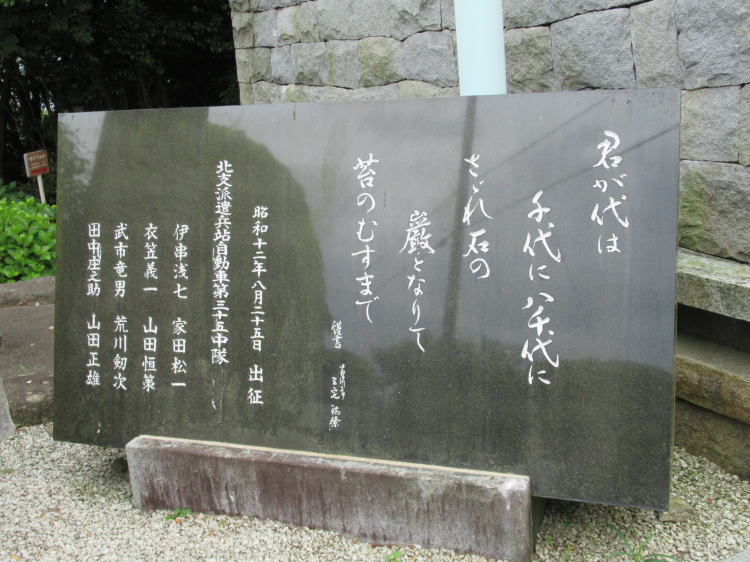 君が代は
千代に八千代に
さゞれ石の
巌となりて
苔のむすまで
謹書
昭和十二年八月二十五日 出征
北支派遣兵站自動車第三十五中隊
伊串浅七 家田松一
衣笠義一 山田恒策
武市竜男 荒川釼次
田中庄之助 山田正雄